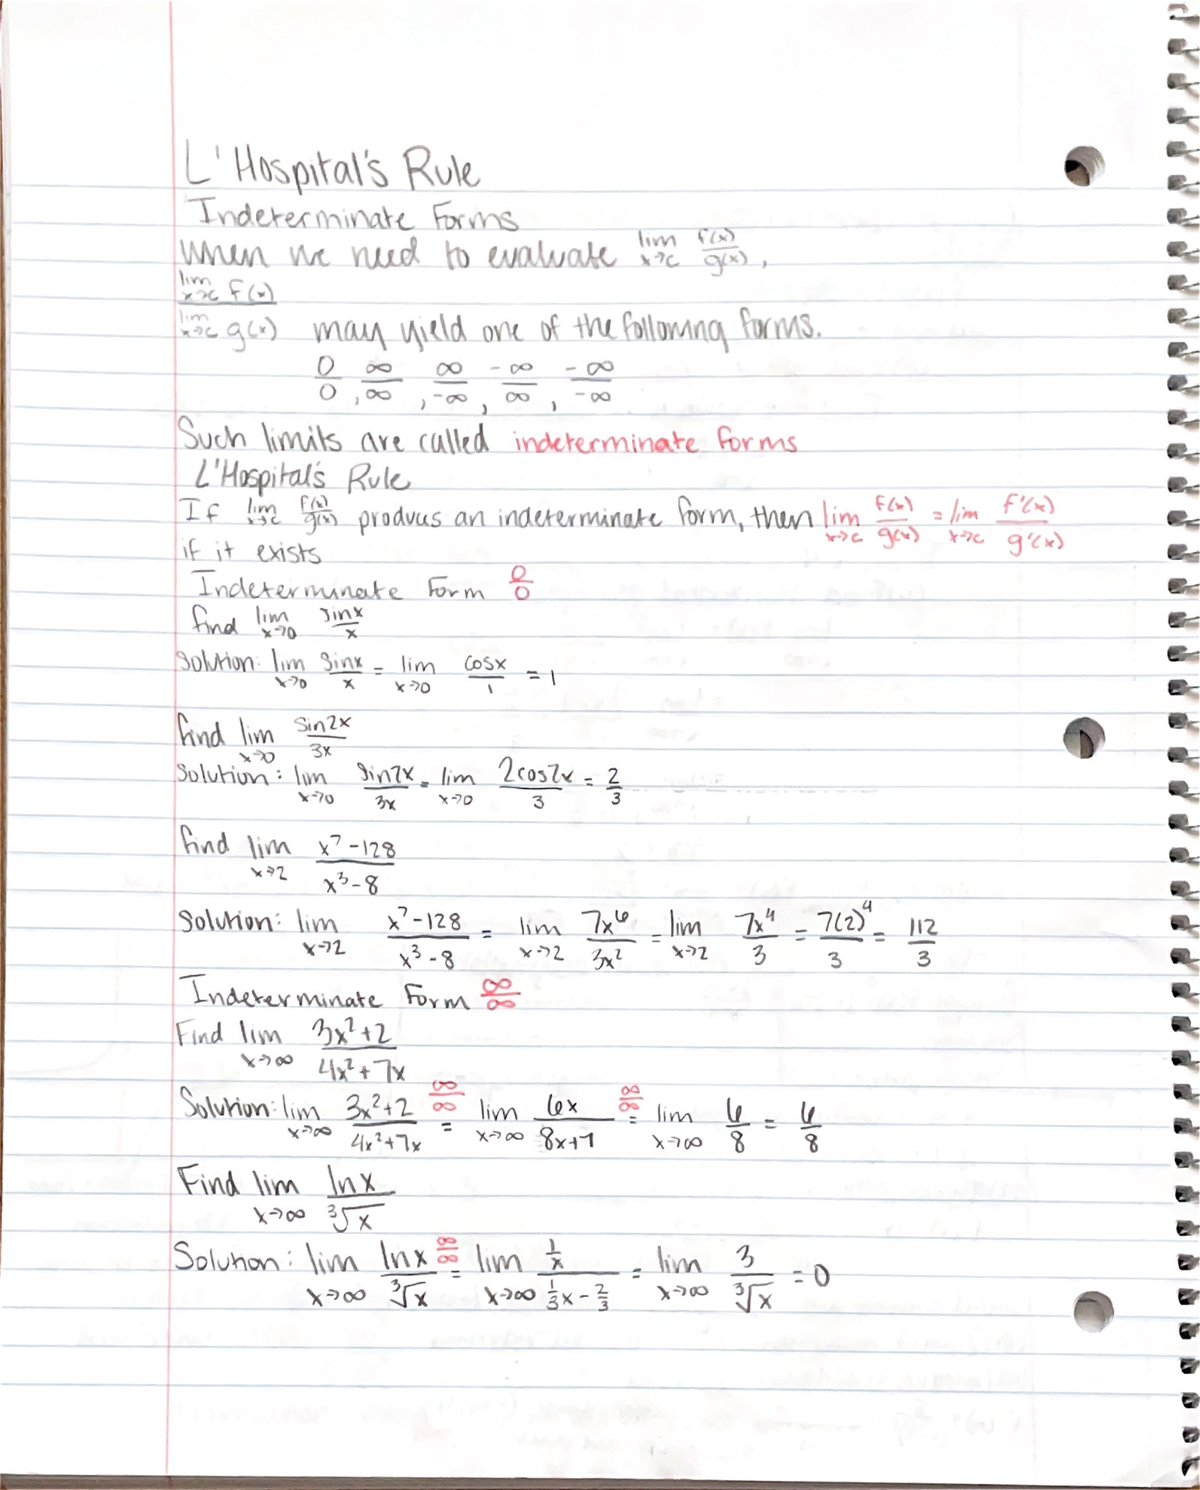 L'Hospital's Rule
Indeterminate Forms
When we need to evaluate lim x→c f(x)/g(x),
lim x→c f(x)
lim x→c g(x) may yield one of the following forms.
0/0, ∞/∞, ∞/-∞, -∞/∞, -∞/-∞
Such limits are called indeterminate forms
L'Hospital's Rule
If lim x→c f(x)/g(x) produces an indeterminate form, then lim x→c f(x)/g(x) = lim x→c f'(x)/g'(x)
if it exists
Indeterminate Form 0/0
find lim x→0 sinx/x
Solution: lim x→0 sinx/x = lim x→0 cosx/1 = 1
find lim x→0 sin2x/3x
Solution: lim x→0 sin2x/3x = lim x→0 2cos2x/3 = 2/3
find lim x→2 x⁷-128/x³-8
Solution: lim x→2 x⁷-128/x³-8 = lim x→2 7x⁶/3x² = lim x→2 7x⁴/3 = 7(2)⁴/3 = 112/3
Indeterminate Form ∞/∞
Find lim x→∞ 3x²+2/4x²+7x
Solution: lim x→∞ 3x²+2/4x²+7x ∞/∞ = lim x→∞ 6x/8x+7 ∞/∞ = lim x→∞ 6/8 = 6/8
Find lim x→∞ lnx/∛x
Solution: lim x→∞ lnx/∛x ∞/∞ = lim x→∞ 1/x / 1/3x-2/3 = lim x→∞ 3/∛x = 0